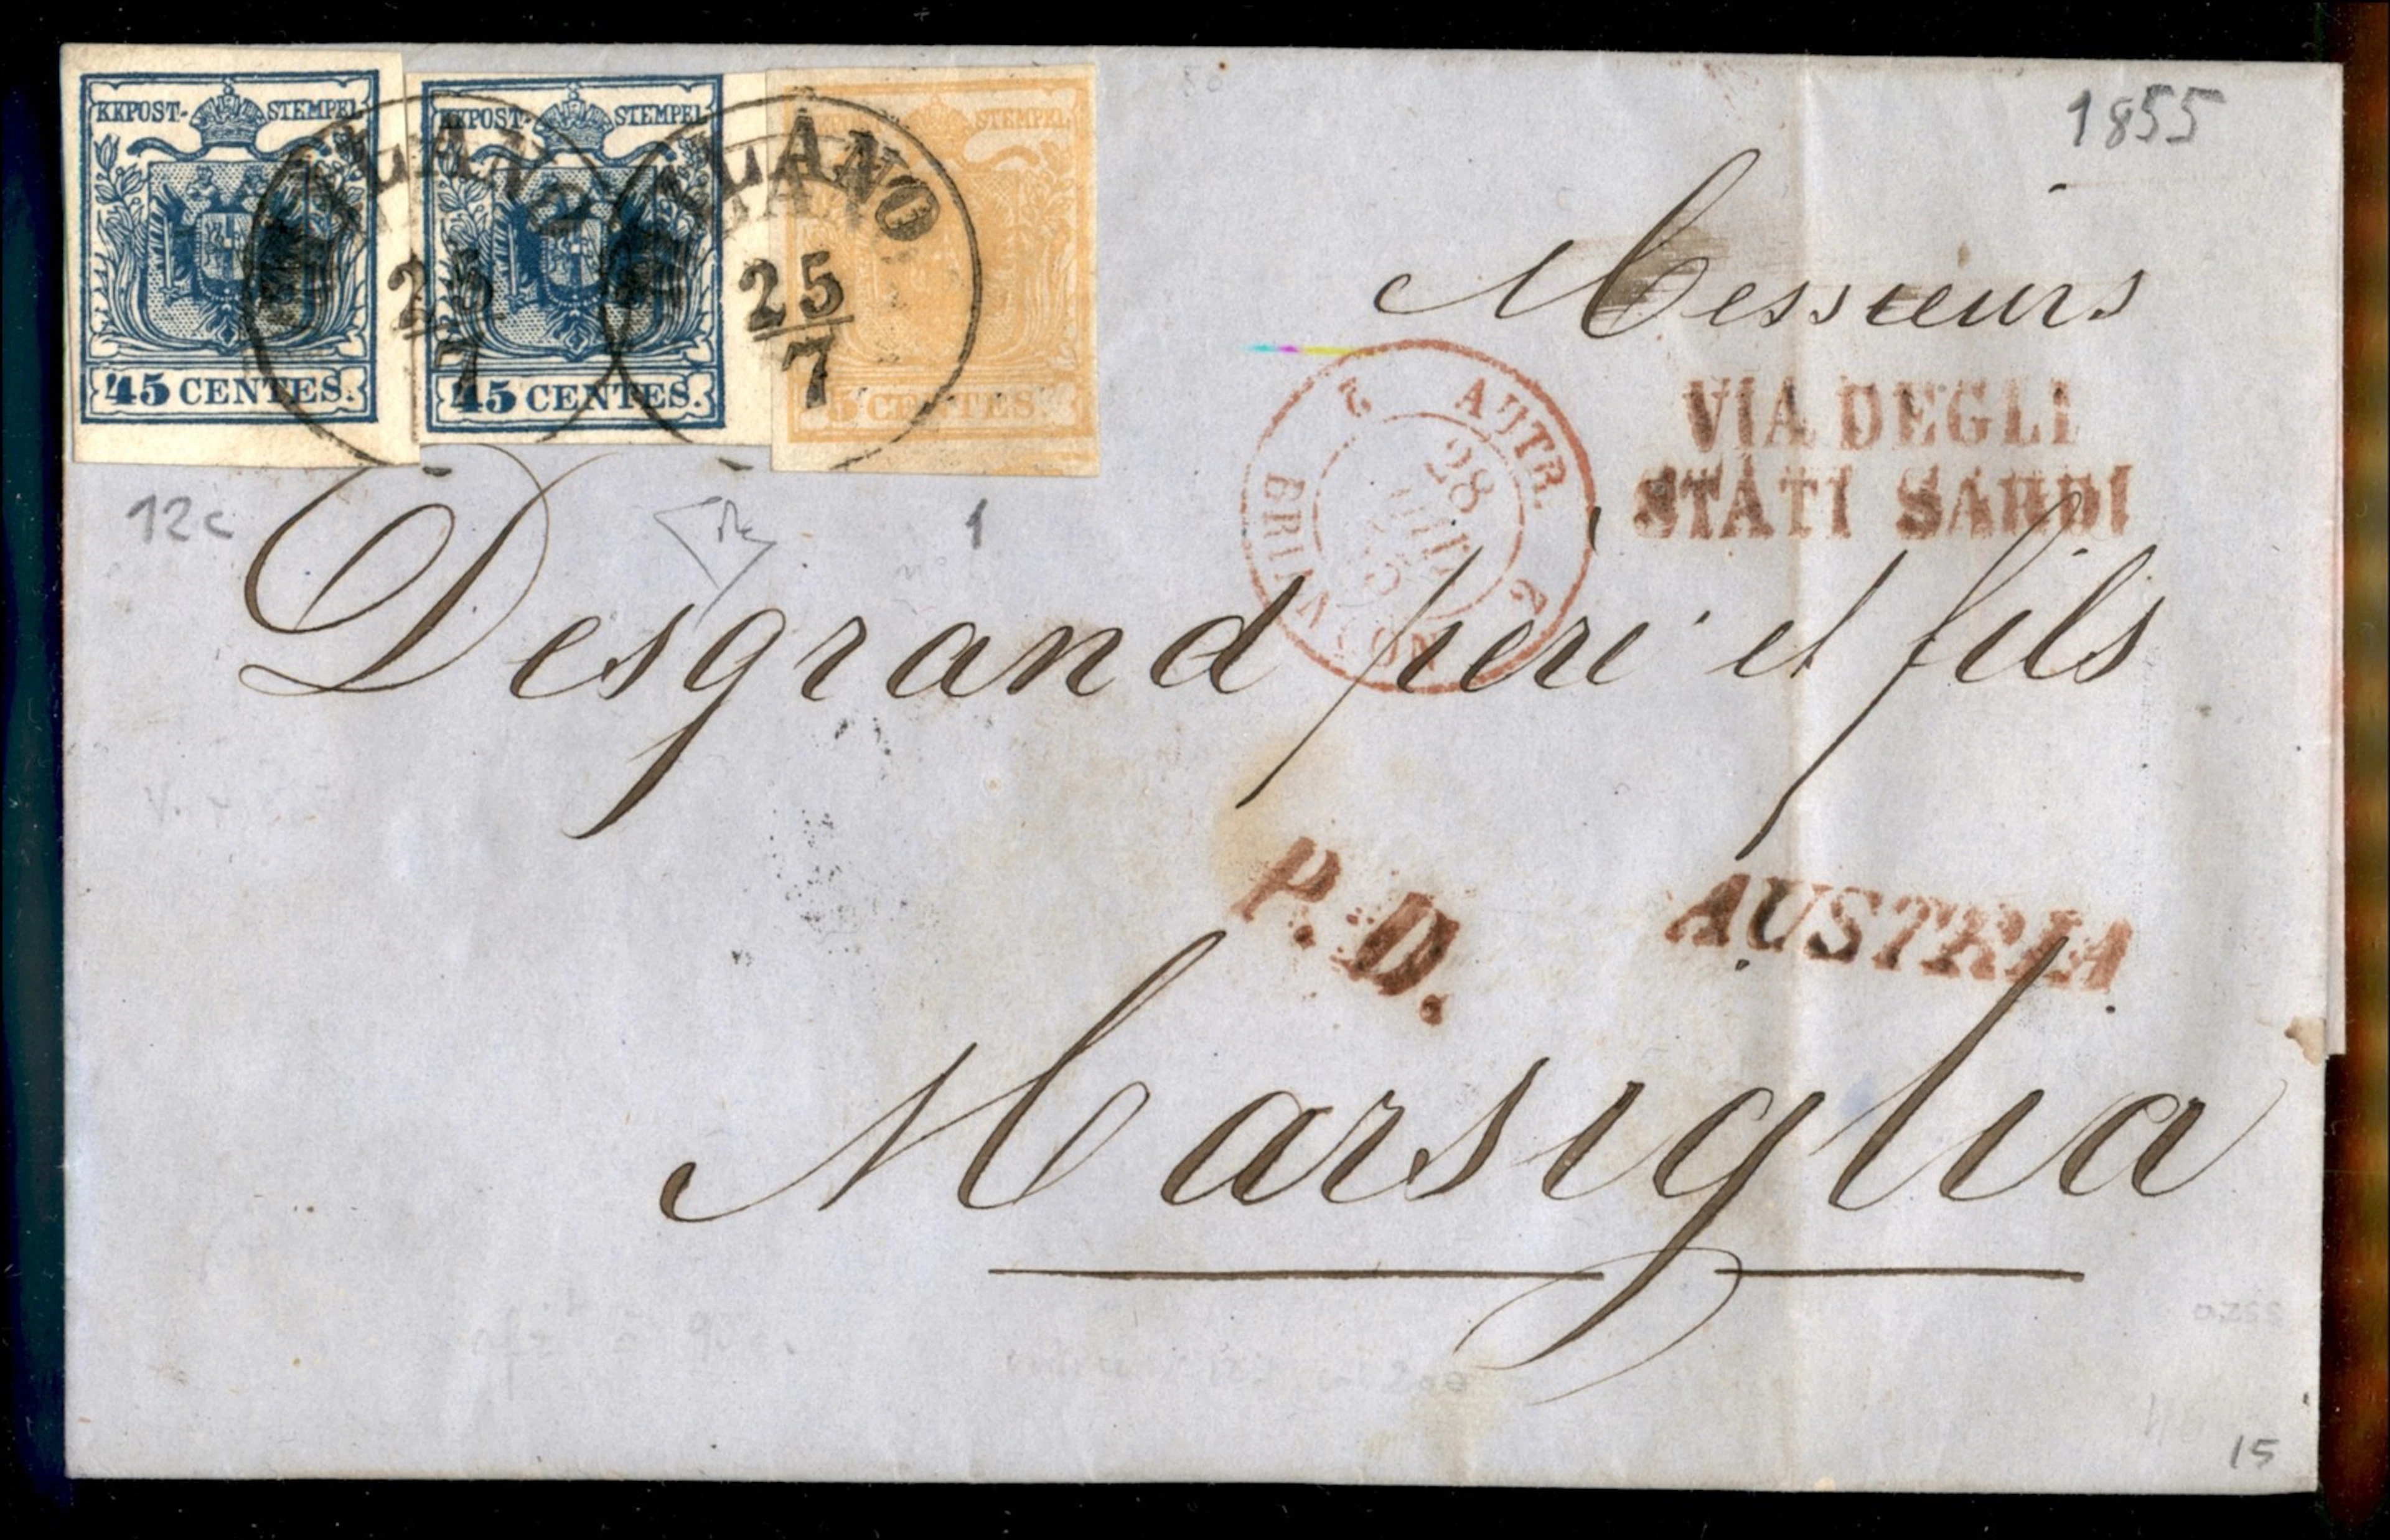 KKPOST-STEMPEL
45 CENTES.
KKPOST-STEMPEL
45 CENTES.
STEMPEL
5 CENTES.
MILANO
25
7
MILANO
25
7
1855
12c
1
Messieurs
VIA DEGLI
STATI SARDI
2 AUTR. 2
28
BRIANÇON
Desgrand père et fils
P.D.
AUSTRIA
Marsiglia
15